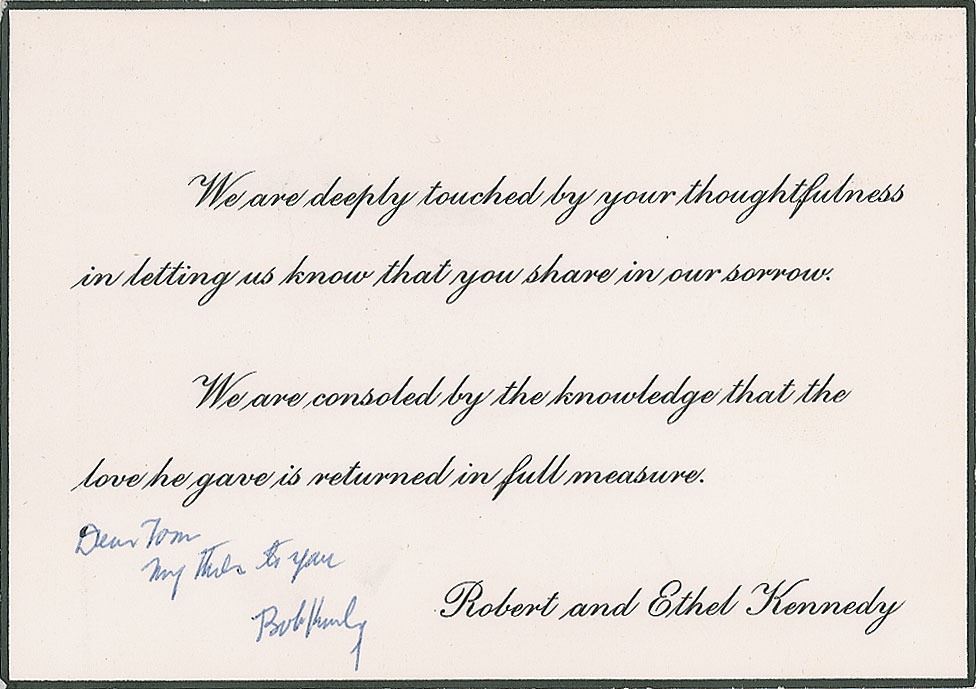 We are deeply touched by your thoughtfulness
in letting us know that you share in our sorrow.
We are consoled by the knowledge that the
love he gave is returned in full measure.
Dear Tom
my to you
Bob
Robert and Ethel Kennedy